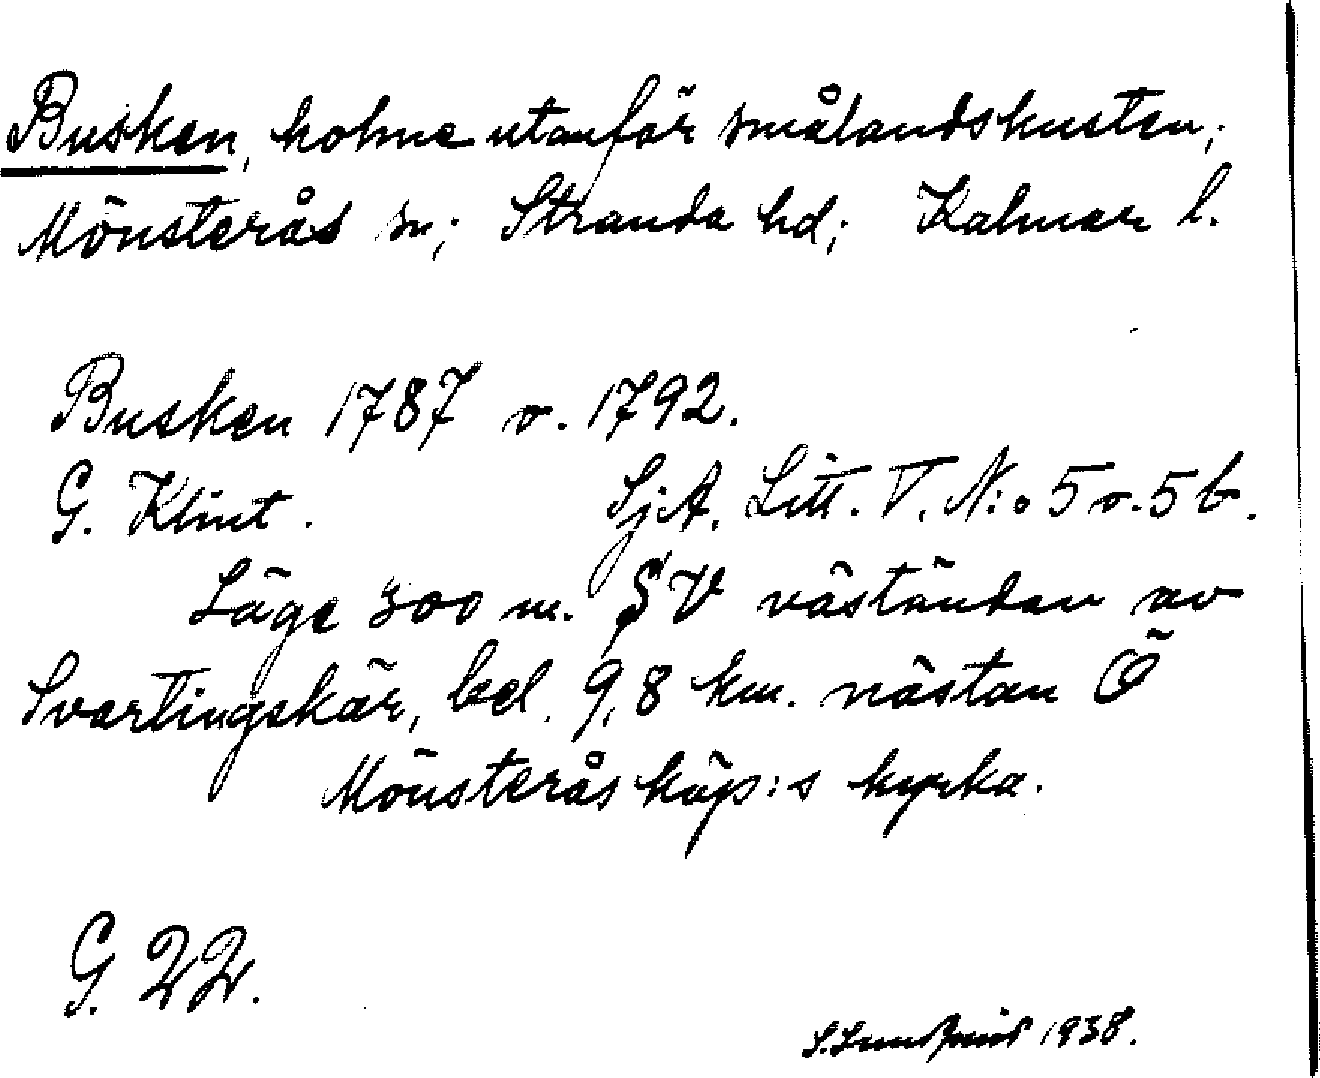 Busken, holme utanför smålandskusten;
Mönsterås sn; Stranda hd; Kalmar l.
Busken 1787 o. 1792.
G. Klint. SjA. Litt. V. N:o 5 o. 5 b.
Läge 300 m. SV väständan av
Svartingskär, bel. 9,8 km. nästan Ö
Mönsterås köp:s kyrka.
G. 22.
S. Lundquist 1938.